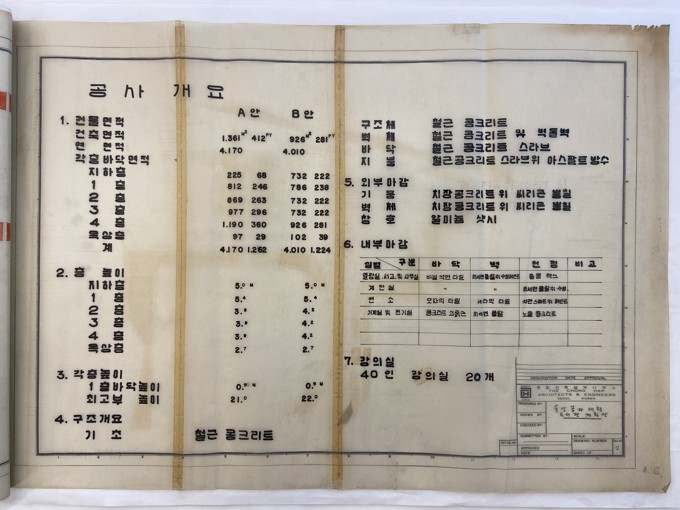 공사 개요
A안 B안
1. 건물면적
건축면적 1.361 M² 412 PY 926 M² 281 PY
연 면적 4.170 4.010
각층바닥면적
지하층 225 68 732 222
1 층 812 246 786 238
2 층 869 263 732 222
3 층 977 296 732 222
4 층 1.190 360 926 281
옥상층 97 29 102 39
계 4.170 1.262 4.010 1.224
2. 층 높이
지하층 5.0 M 5.0 M
1 층 5.4 5.4
2 층 3.9 4.2
3 층 3.9 4.2
4 층 3.9 4.2
옥상층 2.7 2.7
3. 각층높이
1층바닥높이 0.9 M 0.9 M
최고부 높이 21.0 22.0
4. 구조개요
기 초 철근 콩크리트
구조체 철근 콩크리트
벽 체 철근 콩크리트 및 벽돌벽
바 닥 철근 콩크리트 스라브
지 붕 철근콩크리트 스라브위 아스팔트 방수
5. 외부마감
기 둥 치장콩크리트위 씨리콘 뿜칠
벽 체 치장콩크리트위 씨리콘 뿜칠
창 호 알미늄 샷시
6. 내부마감
실별 구분 바 닥 벽 천 정 비 고
계 단 실 〃 〃
변 소 모자익 타일
기계실 및 전기실 노출 콩크리트
7. 강의실
40인 강의실 20개
DESCRIPTION DATE APPROVAL
ARCHITECTS & ENGINEERS
SEOUL KOREA
DESIGNED BY:
DRAWN BY:
CHECKED BY:
SUBMITTED BY:
APPROVED
DATE
SCALE
DRAWING NUMBER
SHEET OF